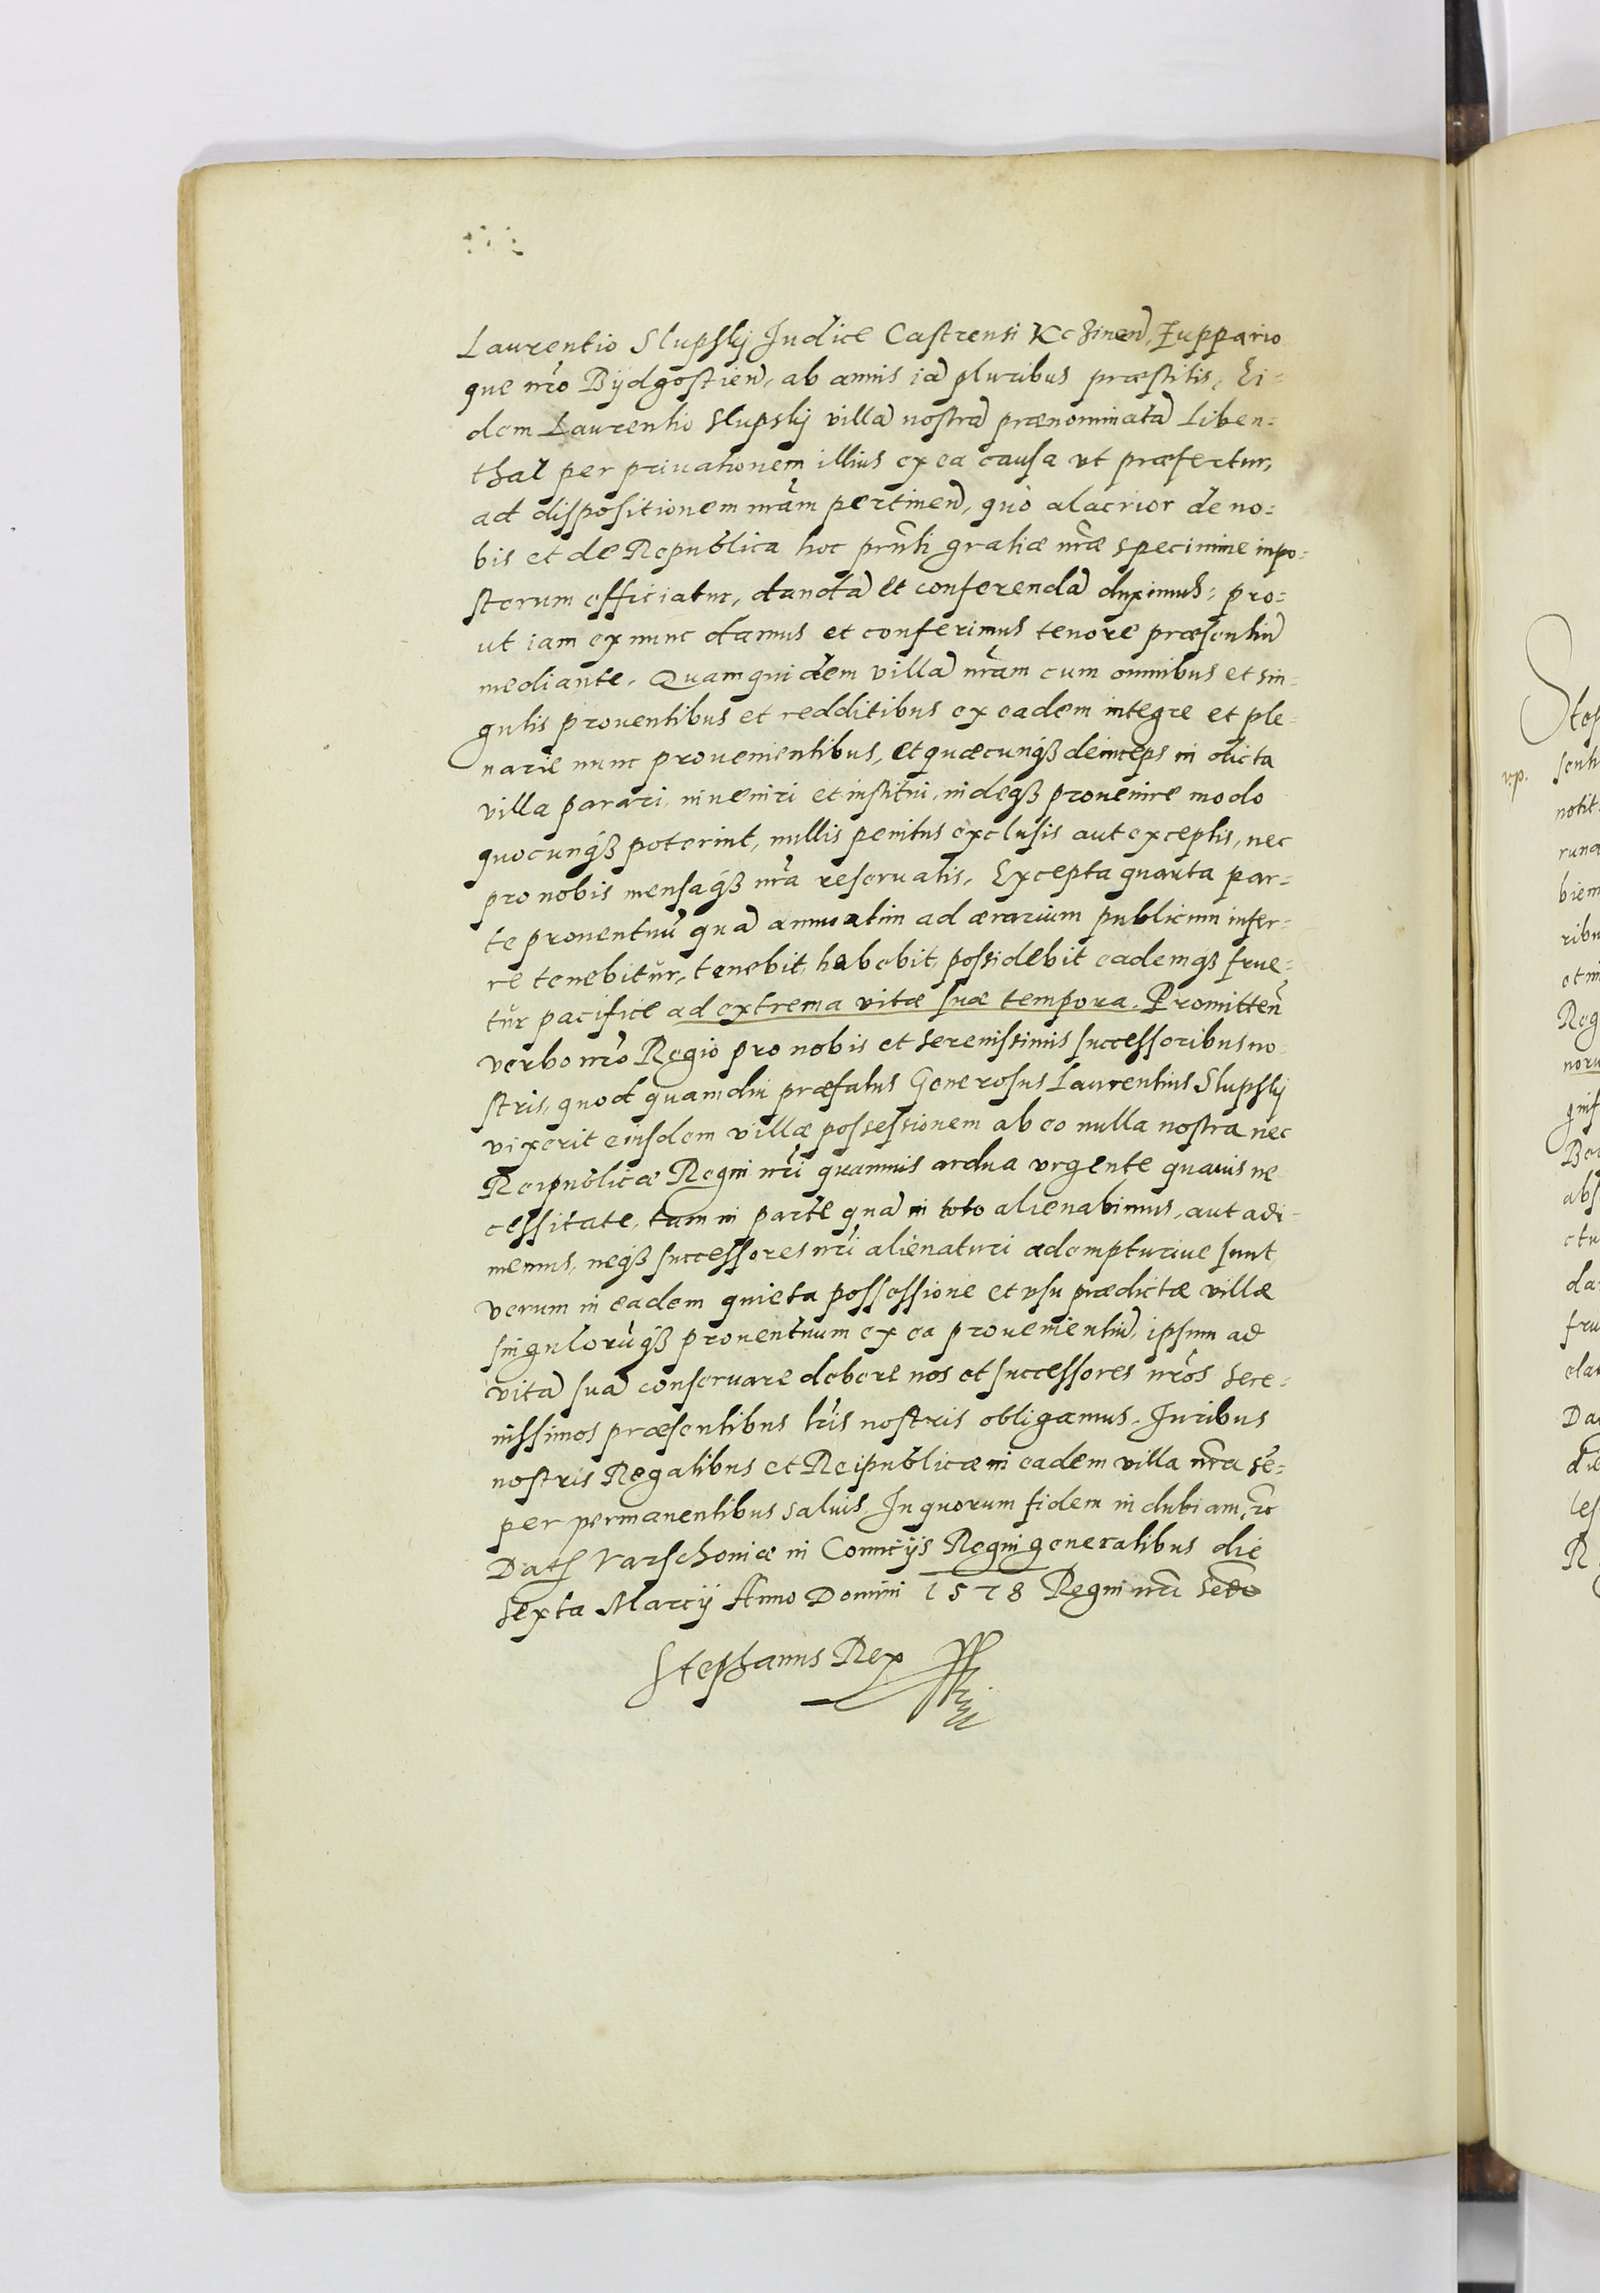 Laurentio Slupsky Judice Castrensi Kczinen̄, Zuppario
que nr̄o Bÿdgostien̄, ab annis iā pluribus præstitis, Ei-
dem Laurentio Slupsky villā nostrā prænominatā Liben-
thal per privationem illius ex ea causa ut præfertur,
ad dispositionem nr̄am pertinen̄, quò alacrior de no-
bis et de Republica hoc pr̄nti gratiæ nr̄æ specimine inpo-
sterum efficiatur, dandā et conferendā duximus; pro-
ut iam ex nunc damus et conferimus tenore præsentiū
mediante. Quam quidem villā nr̄am cum omnibus et sin-
gulis proventibus et redditibus ex eadem integre et ple-
narie nunc provenientibus, et quæcunqꝫ deinceps in dicta
villa parari, inveniri et institui, indeqꝫ provenire modo
quocunqꝫ poterint, nullis penitus exclusis aut exceptis, nec
pro nobis mensaqꝫ nr̄a reservatis. Excepta quarta par-
te proventuū quā annuatim ad ærarium publicum infer-
re tenebitur, tenebit, habebit, possidebit eademqꝫ frue-
tur pacifice ad extrema vitæ suæ tempora. Promitten̄
verbo nr̄o Regio pro nobis et serenissimis successoribus no-
stris, quod quamdiu præfatus Generosus Laurentius Slupsky
vixerit eiusdem villæ possessionem ab eo nulla nostra nec
Reipublicæ Regni nr̄i quamvis ardua urgente quavis ne
cessitate, tam in parte quā in toto alienabimus, aut adi-
memus, neqꝫ successores nr̄i alienaturi adempturive sunt,
verum in eadem quieta possessione et usu prædictæ villæ
singulorūqꝫ proventuum ex ea provenientiū, ipsum ad
vitā suā conservare debere nos et successores nr̄os sere-
nissimos præsentibus lr̄is nostris obligamus. Juribus
nostris Regalibus et Reipublicæ in eadem villa nr̄a sē-
per permanentibus salvis. In quorum fidem indubiam, ꝛc
Datꝭ Varschoviæ in Comitÿs Regni generalibus die
sexta Marcÿ Anno Domini 1578 Regni nr̄i sc̄do
Stephanus Rex